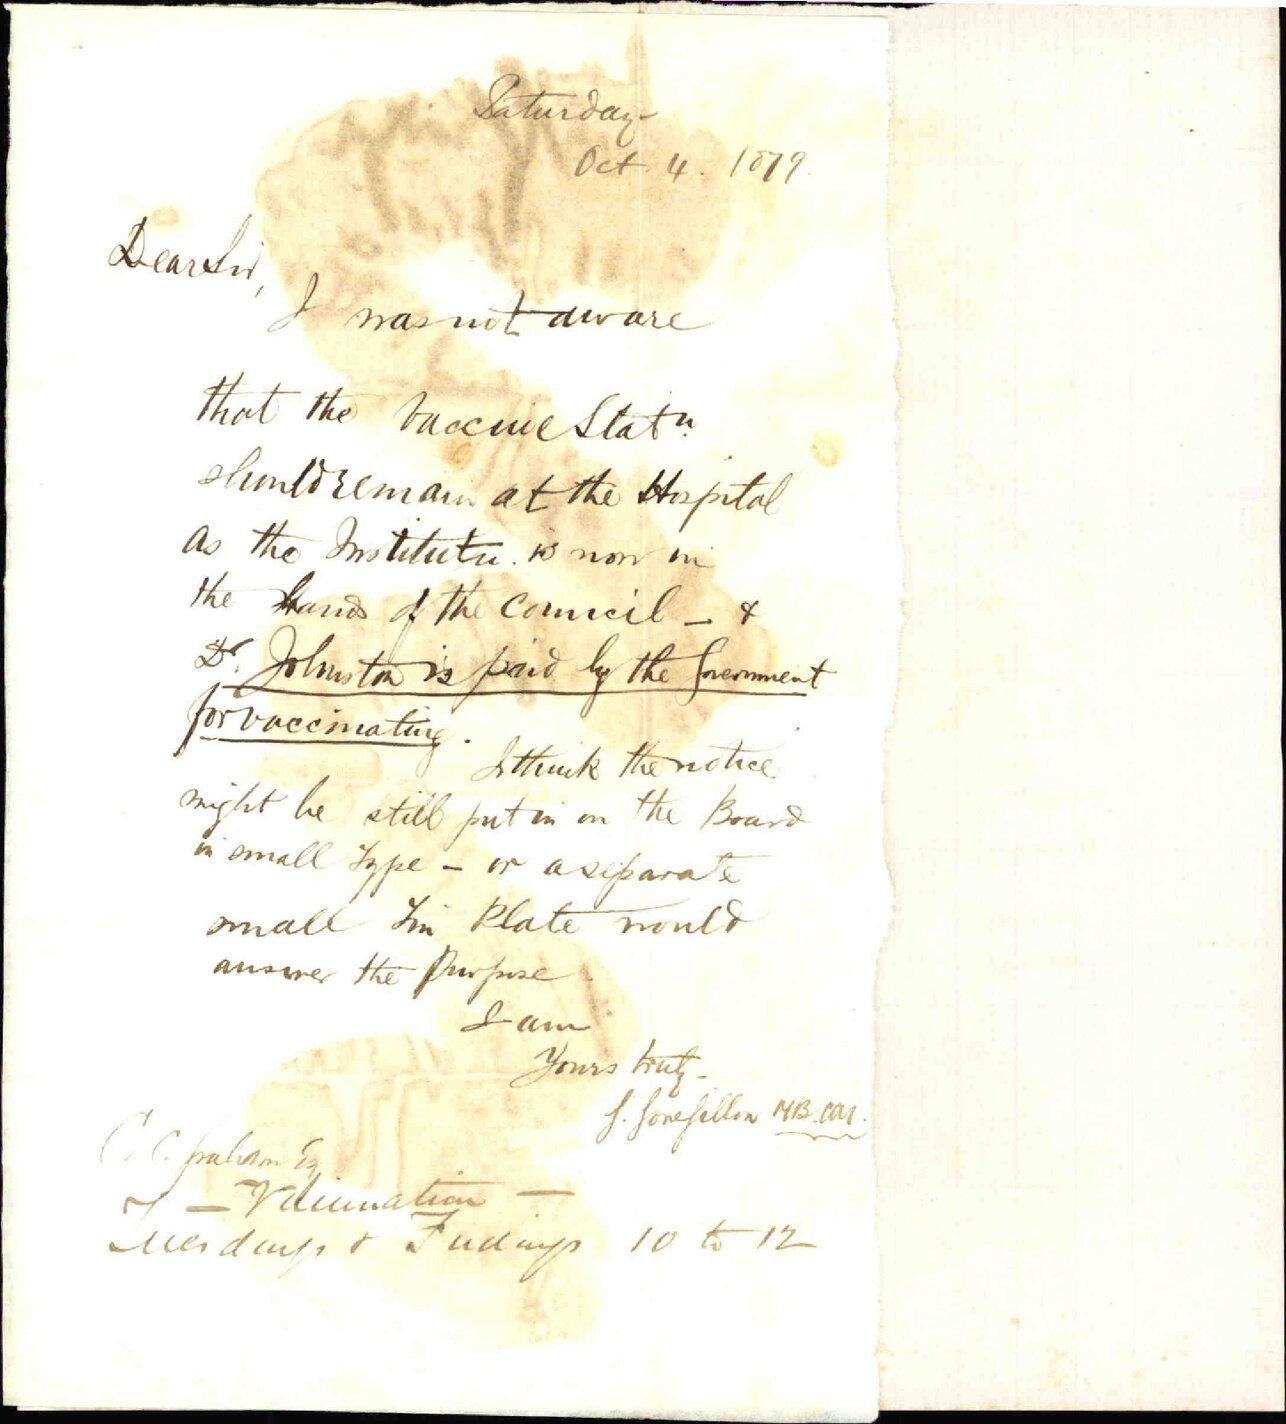 Saturday
Oct 4. 1879
Dear Sir,
I was not aware
that the Vaccine Statn.
should remain at the Hospital
as the Institutn. is now in
the hands of the Council - &
Dr. Johnston is paid by the Government
for vaccinating.
I think the notice
might be still put in on the Board
in small Type - or a separate
small Tin Plate would
answer the Purpose
I am
Yours truly
MB.
C. C. Graham Esq
- Vaccination -
Tuesdays & Fridays 10 to 12